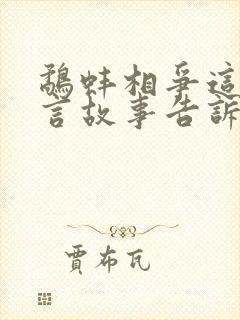 鷸蚌相爭這
言故事告訴
賈布瓦